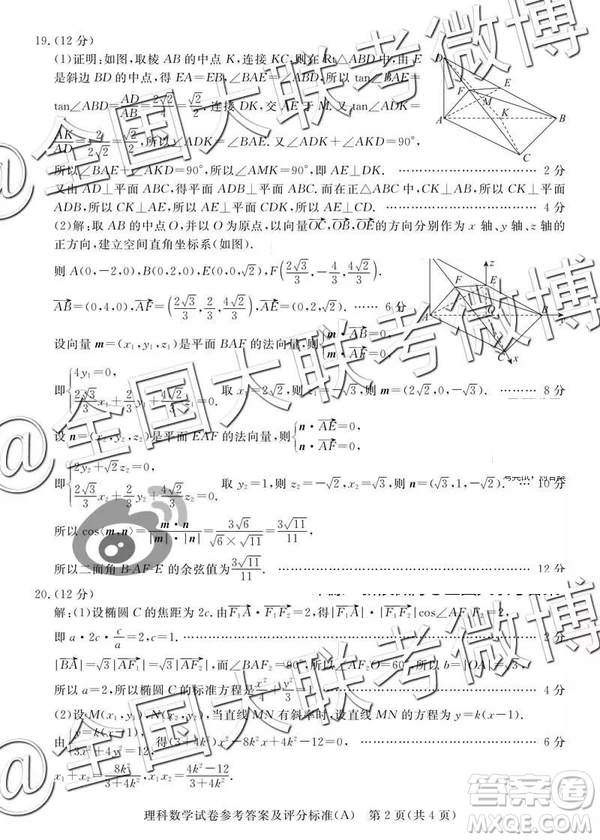 19.(12分)
(1)证明:如图,取棱AB的中点K,连接KC,则在Rt△ABD中,由E
是斜边BD的中点,得EA=EB,∠BAE=∠ABD,所以tan∠BAE=
tan∠ABD=AD/AB=2√2/4=√2/2,连接DK,交AE于M.又tan∠ADK=
AK/AD=2/(2√2)=√2/2,所以∠ADK=∠BAE.又∠ADK+∠AKD=90°,
所以∠BAE+∠AKD=90°,所以∠AMK=90°,即AE⊥DK. 2分
又由AD⊥平面ABC,得平面ABC⊥平面ADB,所以CK⊥平面
ADB,所以CK⊥AE,所以AE⊥平面CDK,所以AE⊥CF. 4分
(2)解:取AB的中点O,并以O为原点,以向量OC,OB,OE的方向分别作为x轴、y轴、z轴的
正方向,建立空间直角坐标系(如图).
则A(0,-2,0),B(0,2,0),E(0,0,√2),F(2√3/3,-4/3,4√2/3).
AB=(0,4,0),AF=(2√3/3,2/3,4√2/3),AE=(0,2,√2). …… 6分
设向量m=(x₁,y₁,z₁)是平面BAF的法向量,则
即{4y₁=0, 2√3/3x₁+2/3y₁+4√2/3z₁=0. 取x₁=2√2,则则m=(2√2,0,-√3). 8分
设n=(x₂,y₂,z₂)是平面EAF的法向量,则{n·AE=0, n·AF=0,
即{2y₂+√2z₂=0, 2√3/3x₂+2/3y₂+4√2/3z₂=0. 取y₂=1,则z₂=-√2,x₂=√3,则n=(√3,1,-√2). 10分
所以cos⟨m,n⟩=m·n/|m||n|=3√6/(√6×√11)=3√11/11,
所以二面角B-AF-E的余弦值为3√11/11. 12分
20.(12分)
解:(1)设椭圆C的焦距为2c.由F₁A·F₁F₂=2,得|F₁A|·|F₁F₂|cos∠AF₁F₂=2,
即a·2c·c/a=2,c=1. 2分
|BA|=√3|AF₁|=√3|AF₂|,而∠BAF₂=90°,所以∠AF₂O=60°,所以b=|OA|=√3.
所以a=2,所以椭圆C的标准方程是x²/4+y²/3=1. 4分
(2)设M(x₁,y₁),N(x₂,y₂),当直线MN有斜率时,设直线MN的方程为y=k(x-1).
由{y=k(x-1), 3x²+4y²=12, 得(3+4k²)x²-8k²x+4k²-12=0. 6分
x₁+x₂=8k²/(3+4k²),x₁x₂=(4k²-12)/(3+4k²).
理科数学试卷参考答案及评分标准(A) 第2页(共4页)
@全国大联考微博
@全国大联考微博
@全国大联考微博
答案圈